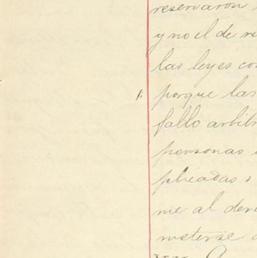 reservaron
y no el de re
las leyes con
porque las
fallo arbitr
personas
pleadas
me al dere
meterse